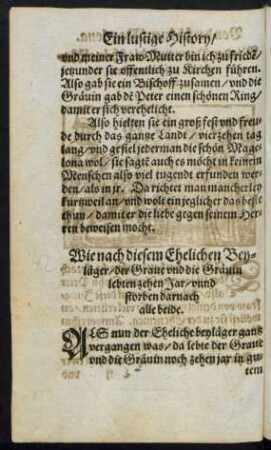 Ein lustige History/
und meiner Fraw Mutter bin ich zu fridē/
jetzunder sie offentlich zu Kirchen führen.
Also gab sie ein Bischoff zusamen/ und die
Gräuin gab dē Peter einen schönen Ring/
damit er sich verehelicht.
Also hielten sie ein groß fest und freu-
de durch das gantze Landt/ vierzehen tag
lang/ und gefiel jederman die schön Mage-
lona wol/ sie sagtē auch es möcht in keinem
Menschen also viel tugendt erfunden wer-
den/ als in jr. Da richtet man mancherley
kurtzweil an/ und wolt ein jeglicher das best
thun/ damit er die liebe gegen seinem Her-
ren beweisen mocht.
Wie nach diesem Ehelichen Bey-
läger/ der Graue vnd die Gräuin
lebten zehen Jar/ vnnd
storben darnach
alle beide.
ALS nun der Eheliche beyläger gantz
vergangen was/ da lebte der Graue
vnd die Gräuin noch zehen jar in gu-
tem